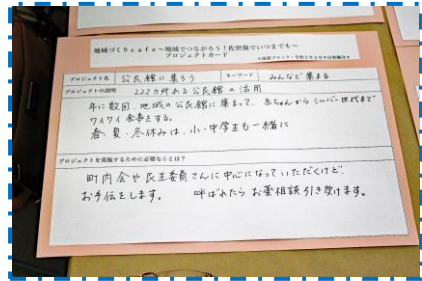 地域づくりcafe〜地域でつながろう！佐世保でいつまでも〜
プロジェクトカード
プロジェクト名 公民館に集ろう キーワード みんなで集まる
プロジェクトの説明 222カ所ある公民館の活用
年に数回、地域の公民館に集まって、赤ちゃんからシルバー世代まで
ワイワイ食事をする。
春、夏、冬休みは、小・中学生も一緒に
プロジェクトを実施するために必要なことは？
町内会や民生委員さんに中心になっていただくけど、
お手伝をします。 呼ばれたらお薬相談引き受けます。